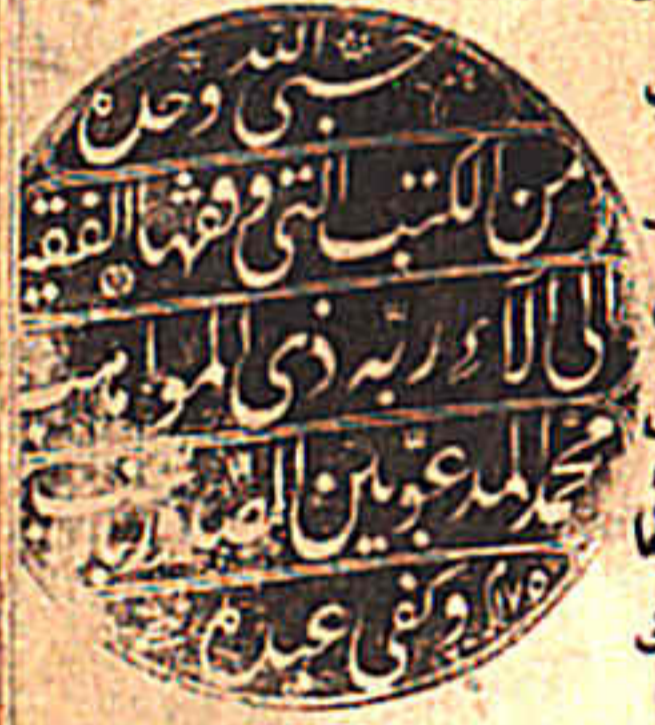 حسبي الله وحده
من الكتب التي وقفها الفقير
الى آلاء ربّه ذي المواهب
محمد المدعوّ بين الصدور
وكفى عبده